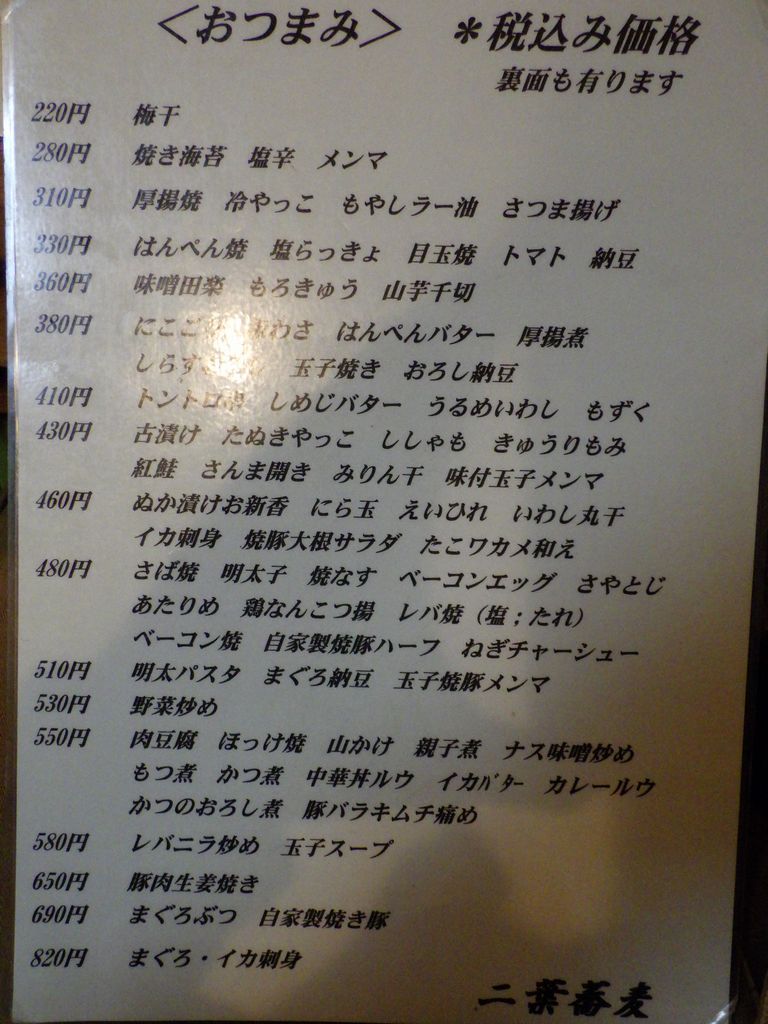 ＜おつまみ＞ ＊税込み価格
裏面も有ります
220円 梅干
280円 焼き海苔 塩辛 メンマ
310円 厚揚焼 冷やっこ もやしラー油 さつま揚げ
330円 はんぺん焼 塩らっきょ 目玉焼 トマト 納豆
360円 味噌田楽 もろきゅう 山芋千切
380円 にこご はんぺんバター 厚揚煮
玉子焼き おろし納豆
410円 しめじバター うるめいわし もずく
430円 古漬け たぬきやっこ ししゃも きゅうりもみ
紅鮭 さんま開き みりん干 味付玉子メンマ
460円 ぬか漬けお新香 にら玉 えいひれ いわし丸干
イカ刺身 焼豚大根サラダ たこワカメ和え
480円 さば焼 明太子 焼なす ベーコンエッグ さやとじ
あたりめ 鶏なんこつ揚 レバ焼（塩；たれ）
ベーコン焼 自家製焼豚ハーフ ねぎチャーシュー
510円 明太パスタ まぐろ納豆 玉子焼豚メンマ
530円 野菜炒め
550円 肉豆腐 ほっけ焼 山かけ 親子煮 ナス味噌炒め
もつ煮 かつ煮 中華丼ルウ イカバター カレールウ
かつのおろし煮 豚バラキムチ痛め
580円 レバニラ炒め 玉子スープ
650円 豚肉生姜焼き
690円 まぐろぶつ 自家製焼き豚
820円 まぐろ・イカ刺身
二葉蕎麦